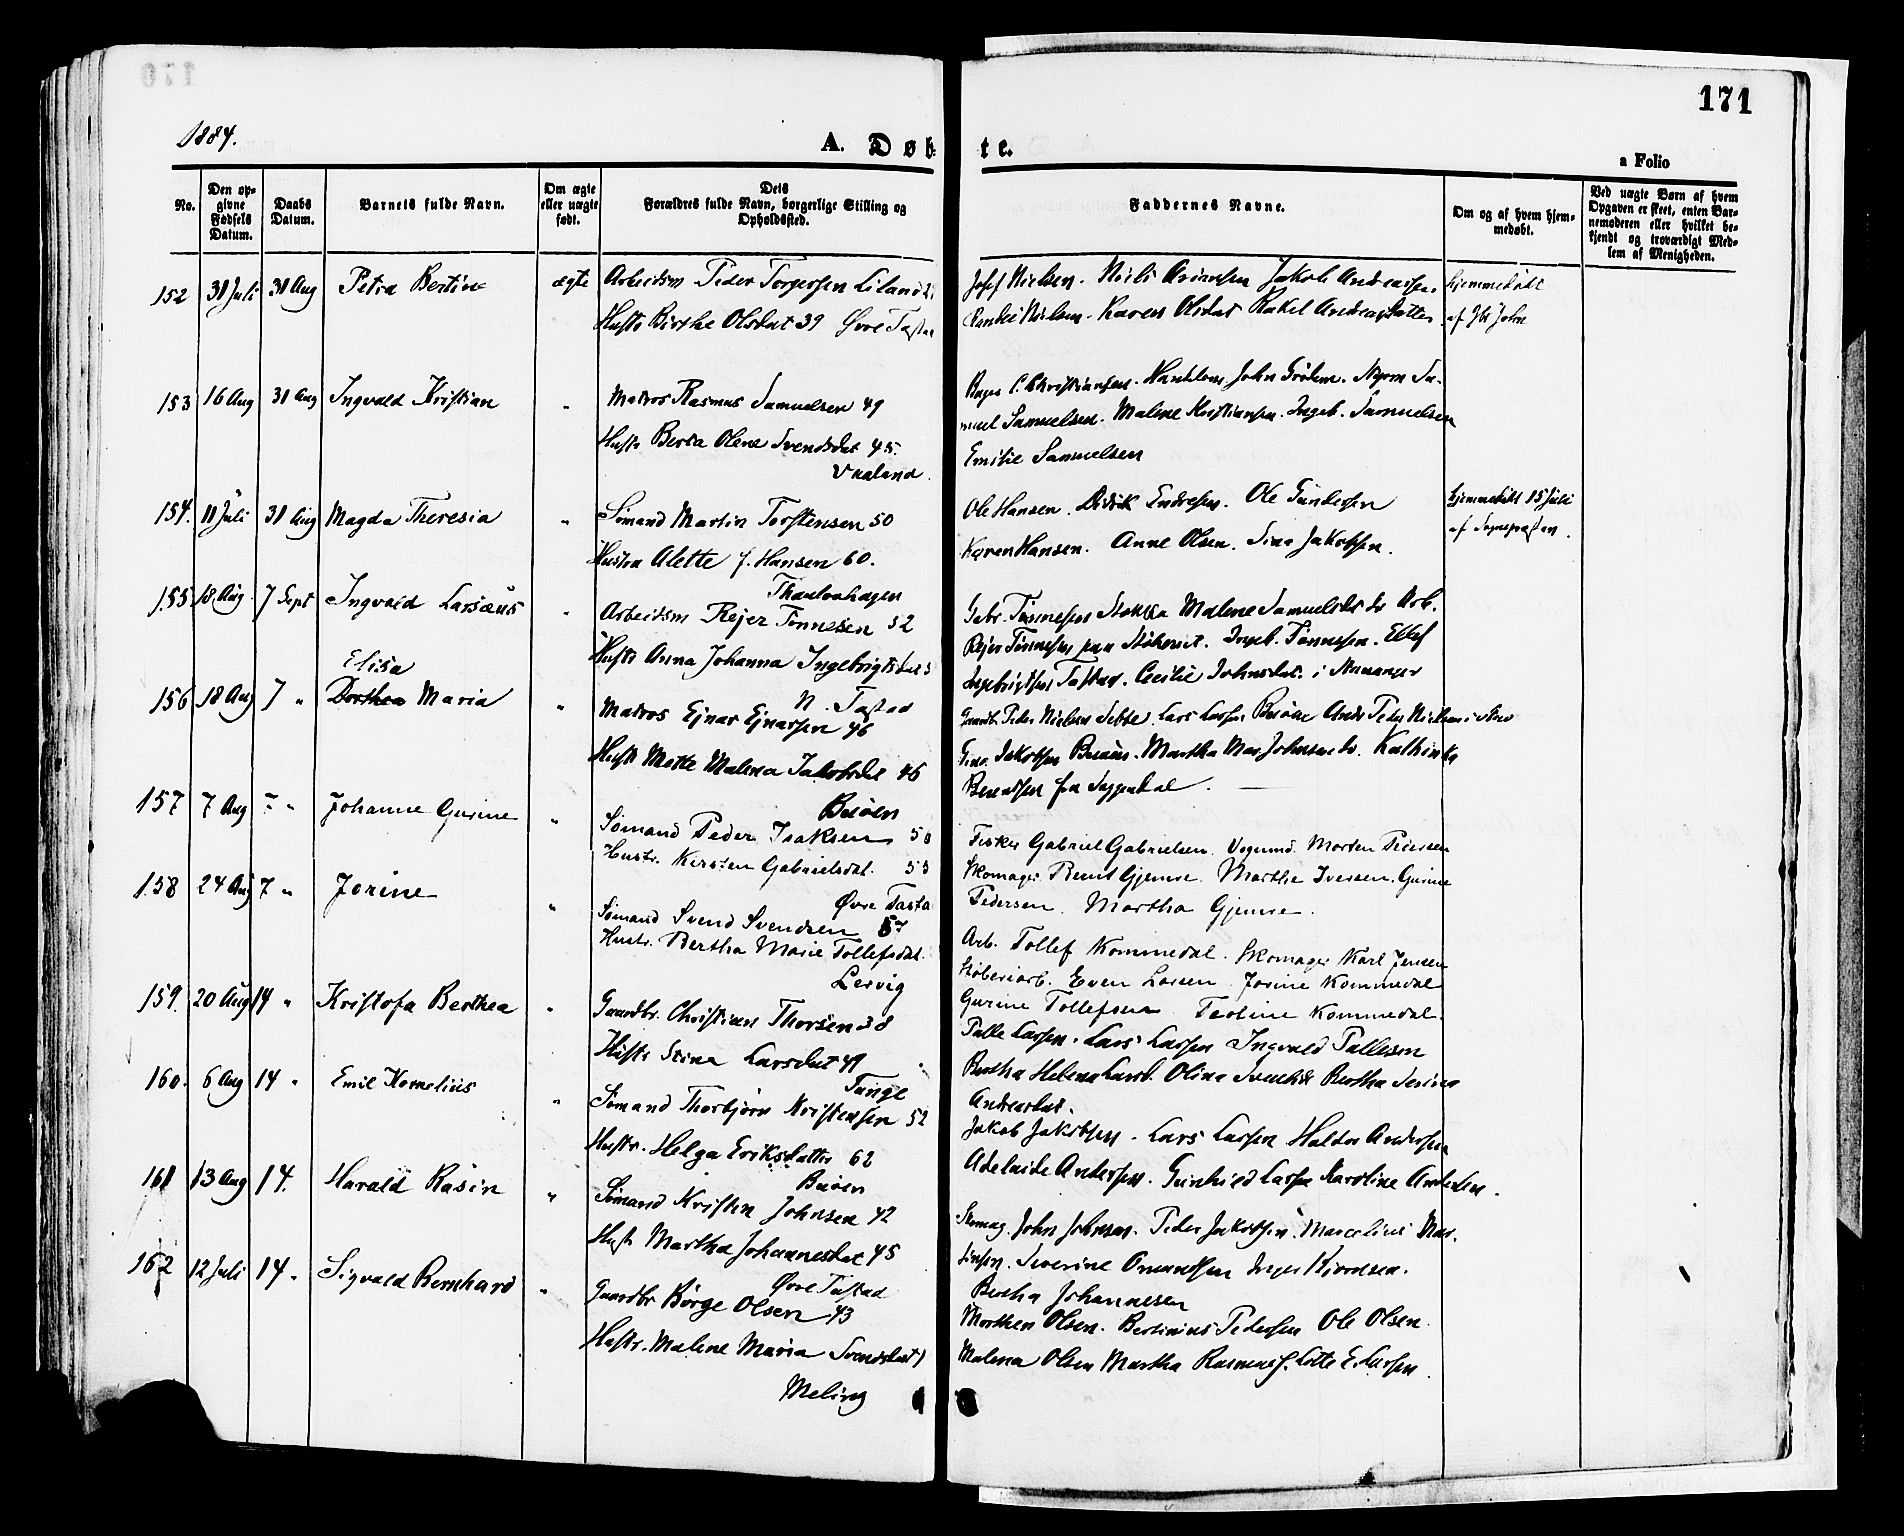 171
1884.
A. Døb-
te.
a Folio
No.
Den op-
givne
Fødsels
Datum.
Daabs
Datum.
Barnets fulde Navn.
Om ægte
eller uægte
født.
Dets
Forældres fulde Navn, borgerlige Stilling og
Opholdssted.
Faddernes Navne.
Om og af hvem hjem-
medøbt.
Ved uægte Børn af hvem
Opgaven er skeet, enten Bar-
nemoderen eller hvilket be-
kjendt og troværdigt Med-
lem af Menigheden.
152 31 Juli 31 Aug Petra Bertine ægte Arbeidsm Peder Torgersen Liland
Hustr Birthe Olsdat 39 Øvre Tastad
Josef Nielsen. Niels Ariansen Jakob Andreassen.
Nielsen. Karen Olsdat Rakel Andreasdatter
hjemmedøbt
af John
153 16 Aug 31 Aug Ingvald Kristian " Matros Rasmus Samuelsen 49
Hustr Berta Olene Svendsdat 45.
Vaaland.
C. Christiansen. John Sa-
muel Samuelsen. Malene Kristiansen. Ingeb. Samuelsen
Emilie Samuelsen
154. 11 Juli 31 Aug Magda Theresia " Sømand Martin Torstensen 50
Hustru Alette f. Hansen 60.
Ole Hansen. Didrik Endresen. Ole Gundersen
Karen Hansen. Anne Olsen. Sina Jakobsen.
hjemmedøbt 15 Juli
af Sognepresten.
155. 18 Aug. 7 Sept Ingvald Larsæus " Arbeidsm Rejer Tønnesen 52
Hustr Anna Johanna Ingebrigtsdat
N. Tastad
Tønnesen Malene Samuelsdtr Arb.
Rejer Tønnesen paa Støberiet. Ingeb. Tønnesen. Ellef
Ingebrigtsen Tastad. Cecilie Johnsdat. i Stavanger
156 18 Aug 7 " Elisa
Dorthea Maria " Matros Ejnar Ejnarsen 46
Hustr Mette Malena Jakobsdat 46
Buøen
Gaardb. Peder Nielsen Lars Larsen Buøen
Jakobsen Buøen. Martha Mar. Kathinka
Berentsen fra Soggendal.
157 7 Aug 7 " Johanne Gurine " Sømand Peder Isaksen 50
Hustr. Kirsten Gabrielsdat. 53
Øvre Tasta
Fisker Gabriel Gabrielsen. Vognmd. Morten Pedersen
Skomager Bent Gjemre. Marthe Iversen. Gurine
Pedersen. Martha Gjemre.
158 24 Aug 7 " Jorine " Sømand Svend Svendsen 57
Hustr. Bertha Marie Tollefsdat.
Lervig
Arb. Tollef Kommedal. Skomager Karl Jensen
Støberiarb. Even Larsen. Jorine Kommedal
Gurine Tollefsen Teoline Kommedal.
159. 20 Aug 14 " Kristofa Berthea " Gaardbr. Christian Thorsen 38
Hustr Stina Larsdat 49
Tunge
Palle Larsen. Lars Larsen Ingvald Pallesen
Bertha Helena Larsd. Olina Svendsdt Bertha Serina
Andreasdat.
160. 6 Aug 14 " Emil Kornelius " Sømand Thorbjørn Kristensen 52
Hustr. Helga Eriksdatter 62
Buøen
Jakob Jakobsen. Lars Larsen Haldor Andersen
Adelaide Andersen. Gunhild Larsen Karoline Andersen.
161 13 Aug 14. Harald Rasin " Sømand Kristen Johnsen 42
Hustr Martha Johannesdat 45
Øvre Tastad
Skomag. John Johnsen. Peder Jakobsen. Marcelius Mar-
tinsen. Severine Omundsen Inger Kjordsen.
Bertha Johannesen
162 12 Juli 14 " Sigvald Bernhard " Gaardbr Børge Olsen 43
Hustr. Malene Maria Svendsdat
Meling
Morthen Olsen. Bertinius Pedersen Ole Olsen.
Malena Olsen Martha Rasmus Lotte E. Larsen.